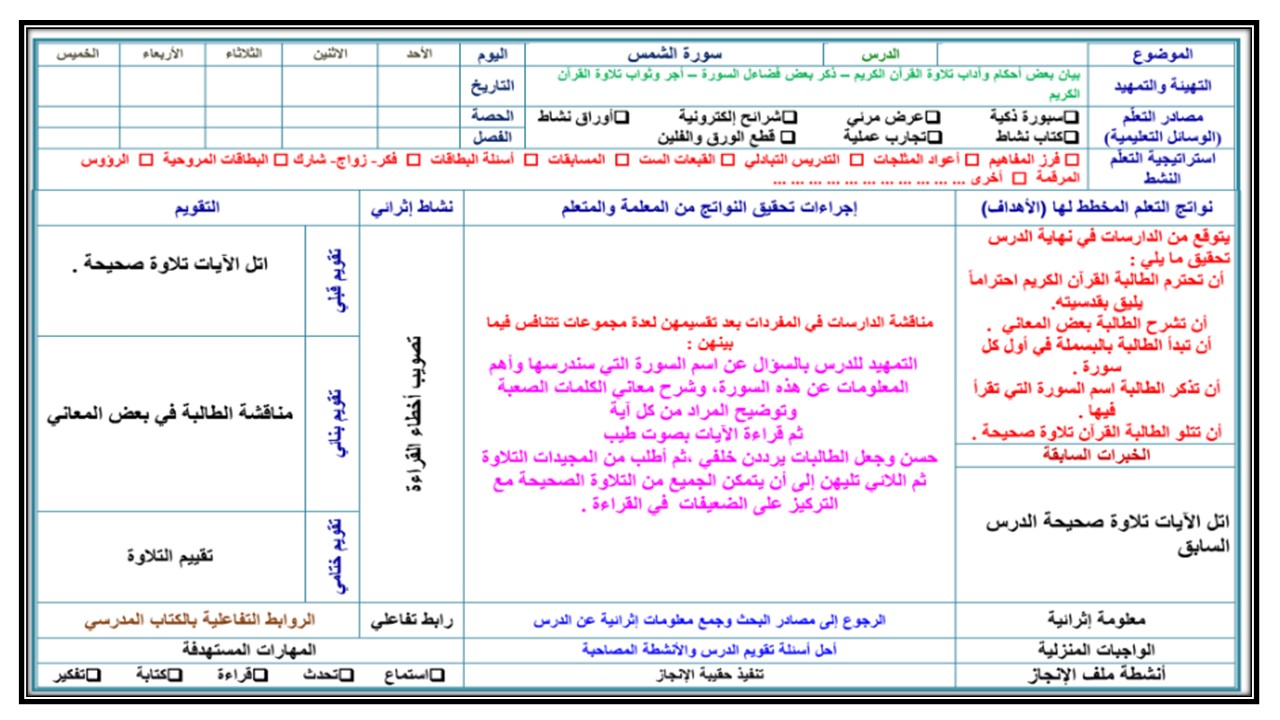 الموضوع الدرس سورة الشمس اليوم الأحد الاثنين الثلاثاء الأربعاء الخميس
التهيئة والتمهيد
بيان بعض أحكام وآداب تلاوة القرآن الكريم – ذكر بعض فضائل السورة – أجر وثواب تلاوة القرآن
الكريم
التاريخ
مصادر التعلّم
(الوسائل التعليمية)
❑سبورة ذكية ❑عرض مرئي ❑شرائح إلكترونية ❑أوراق نشاط
❑كتاب نشاط ❑تجارب عملية ❑ قطع الورق والفلين
الحصة
الفصل
استراتيجية التعلّم
النشط
□ فرز المفاهيم □ أعواد المثلجات □ التدريس التبادلي □ القبعات الست □ المسابقات □ أسئلة البطاقات □ فكر- زواج- شارك □ البطاقات المروحية □ الرؤوس
المرقمة □ أخرى ... ... ... ... ... ... ... ... ... ... ...
نواتج التعلم المخطط لها (الأهداف) إجراءات تحقيق النواتج من المعلمة والمتعلم نشاط إثرائي التقويم
يتوقع من الدارسات في نهاية الدرس
تحقيق ما يلي :
أن تحترم الطالبة القرآن الكريم احتراماً
يليق بقدسيته.
أن تشرح الطالبة بعض المعاني .
أن تبدأ الطالبة بالبسملة في أول كل
سورة .
أن تذكر الطالبة اسم السورة التي تقرأ
فيها .
أن تتلو الطالبة القرآن تلاوة صحيحة .
الخبرات السابقة
اتل الآيات تلاوة صحيحة الدرس
السابق
مناقشة الدارسات في المفردات بعد تقسيمهن لعدة مجموعات تتنافس فيما
بينهن :
التمهيد للدرس بالسؤال عن اسم السورة التي سندرسها وأهم
المعلومات عن هذه السورة، وشرح معاني الكلمات الصعبة
وتوضيح المراد من كل آية
ثم قراءة الآيات بصوت طيب
حسن وجعل الطالبات يرددن خلفي ،ثم أطلب من المجيدات التلاوة
ثم اللاتي تليهن إلى أن يتمكن الجميع من التلاوة الصحيحة مع
التركيز على الضعيفات في القراءة .
تصويب أخطاء القراءة
تقويم قبلي
اتل الآيات تلاوة صحيحة .
تقويم بنائي
مناقشة الطالبة في بعض المعاني
تقويم ختامي
تقييم التلاوة
معلومة إثرائية الرجوع إلى مصادر البحث وجمع معلومات إثرائية عن الدرس رابط تفاعلي الروابط التفاعلية بالكتاب المدرسي
الواجبات المنزلية أحل أسئلة تقويم الدرس والأنشطة المصاحبة المهارات المستهدفة
أنشطة ملف الإنجاز تنفيذ حقيبة الإنجاز ❑استماع ❑تحدث ❑قراءة ❑كتابة ❑تفكير